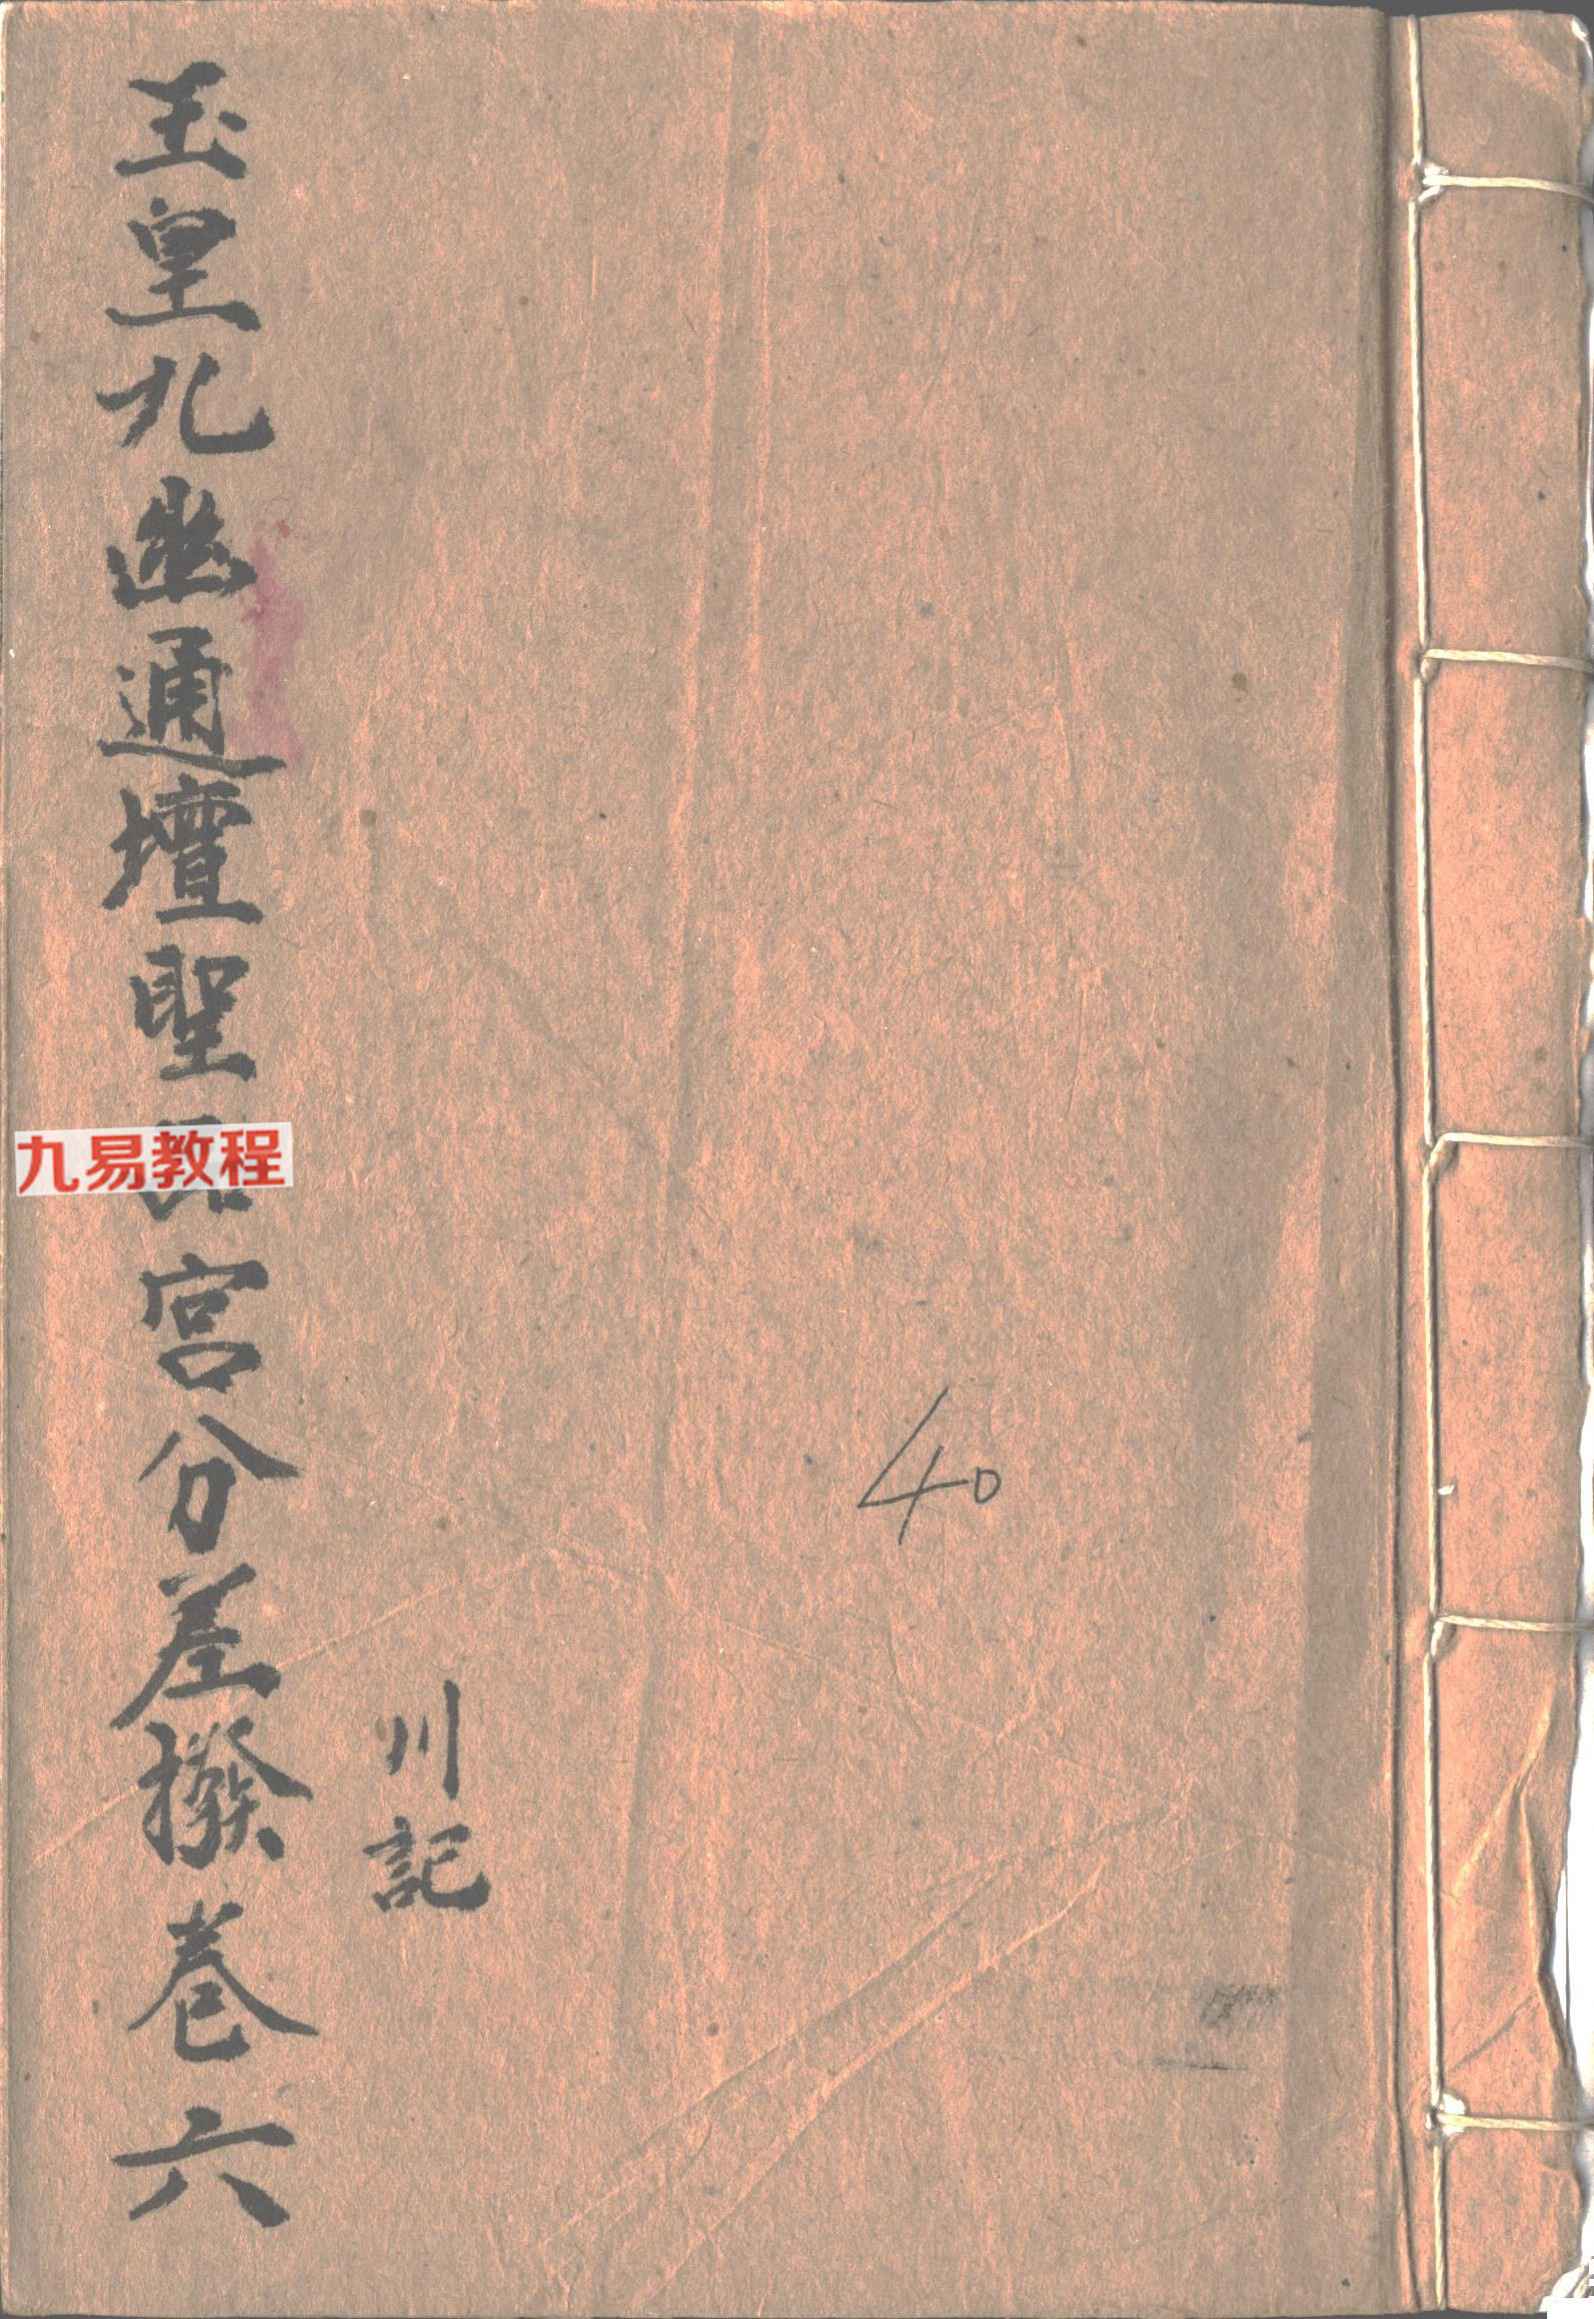 玉皇九幽通壇聖品宮分差撥卷六
川記
40
九易教程